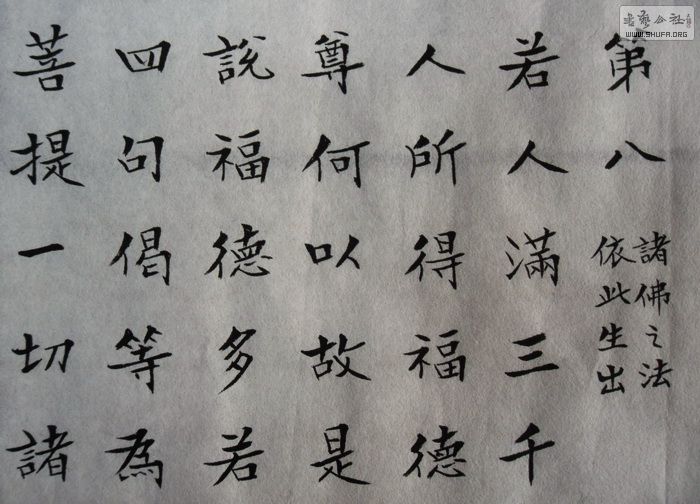 第八
諸佛之法
依此生出
若人滿三千
人所得福德
尊何以故是
說福德多若
四句偈等為
菩提一切諸
WWW.SHUFA.ORG